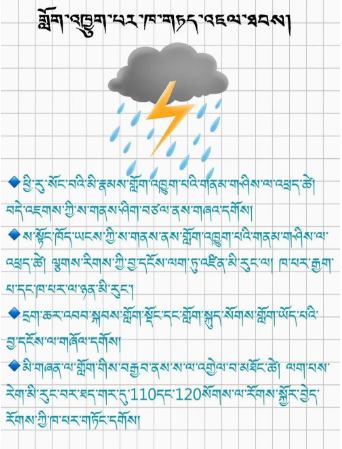 གློག་འཁྱུག་པར་ཁ་གཏད་འཇལ་ཐབས།
ཕྱི་རུ་སོང་བའི་མི་རྣམས་གློག་འཁྱུག་པའི་གནམ་གཤིས་ལ་འཕྲད་ཚེ།
བདེ་འཇགས་ཀྱི་ས་གནས་ཤིག་བཙལ་ནས་གཞའ་དགོས།
ས་སྟོང་ཁོད་ཡངས་ཀྱི་ས་གནས་ནས་གློག་འཁྱུག་པའི་གནམ་གཤིས་ལ་
འཕྲད་ཚེ། ལྕགས་རིགས་ཀྱི་བྱ་དངོས་ལག་ཏུ་འཛིན་མི་རུང་ལ། ཁ་པར་རྒྱག་
པ་དང་ཁ་པར་ལ་ཉན་མི་རུང་།
དྲག་ཆར་འབབ་སྐབས་གློག་སྡོང་དང་གློག་སྐུད་སོགས་གློག་ཡོད་པའི་
བྱ་དངོས་ལ་གཞོལ་དགོས།
མི་གཞན་ལ་གློག་གིས་བརྒྱབ་ནས་ས་ལ་འགྱེལ་བ་མཐོང་ཚེ། ལག་པས་
རེག་མི་རུང་བར་ཐད་གར་དུ་110དང་120སོགས་ལ་རོགས་སྐྱོར་བྱེད་
རོགས་ཀྱི་ཁ་པར་གཏོང་དགོས།